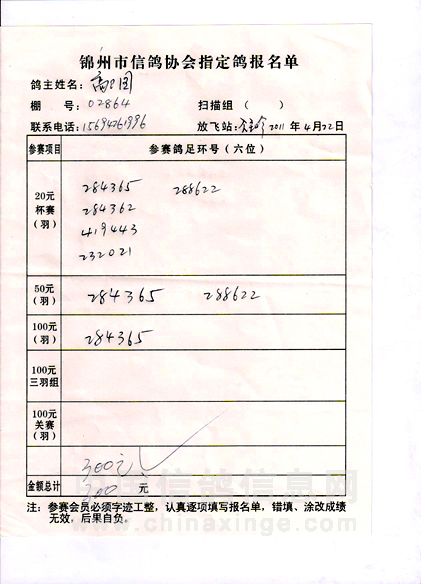 锦州市信鸽协会指定鸽报名单
鸽主姓名：
棚　号：02864　扫描组（　）
联系电话：15694261996　放飞站：2011年4月22日
参赛项目　参赛鸽足环号（六位）
20元杯赛（羽）
284365　288622
284362
419443
232021
50元（羽）　284365　288622
100元（羽）　284365
100元三羽组
100元关赛（羽）
300元
金额总计　300元
注：参赛会员必须字迹工整，认真逐项填写报名单，错填、涂改成绩
无效，后果自负。
中国信鸽信息网
www.chinaxinge.com